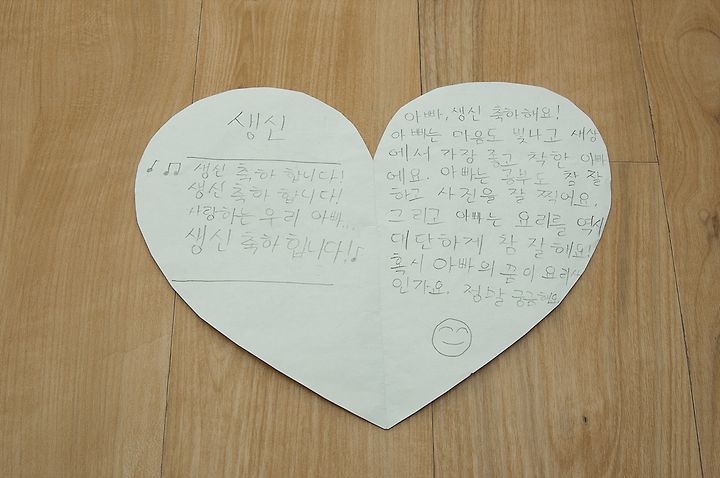 생신
생신 축하 합니다!
생신 축하 합니다!
사랑하는 우리 아빠...
생신 축하합니다!
아빠, 생신 축하해요!
아빠는 마음도 빛나고 세상
에서 가장 좋고 착한 아빠
에요. 아빠는 공부도 참 잘
하고 사진을 잘 찍어요.
그리고 아빠는 요리를 역시
대단하게 참 잘해요!
혹시 아빠의 꿈이 요리사
인가요. 정말 궁금해요